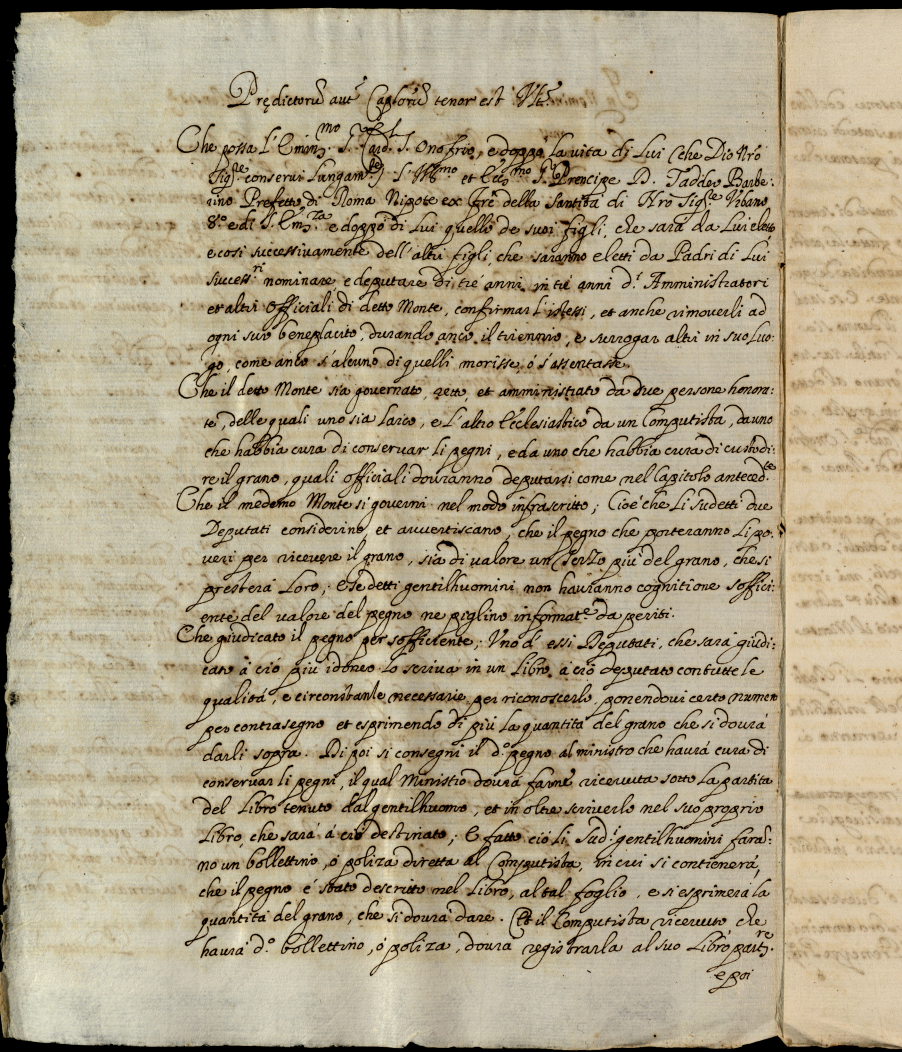 Prędictorũ autẽ Caplorũ tenor est Vtz.
Che possa l'Emin.mo S. Card. S. Onofrio, e doppò la uita di Lui (che Dio Nrõ
Sig.re conserui Lungam.te) l'Ill.mo et Ecc.mo S.r Prencipe D. Taddeo Barbe:
rino Prefetto di Roma Nipote ex fr̃e della Santità di Nrõ Sig.re Vrbano
8.o e di S. Em.za e doppò di Lui quello de suoi figli, che sarà da Lui eletto
e così successiuamente dell'altri figli, che saranno eletti da Padri di Lui
success.ri nominare, e deputare di tré anni, in tré anni d.i Amministratori
et altri Officiali di detto Monte, confirmar l'istessi, et anche rimouerli ad
ogni suo beneplacito, durando anco, il triennio, e surrogar altri in suo Luo:
go, come anco s'alcuno di quelli morisse, ó s'assentasse.
Che il detto Monte sia gouernato, retto, et amministrato da due persone honora:
te, delle quali uno sia Laico, e l'altro Ecclesiastico da un Computista, da uno
che habbia cura di conseruar li pegni, e da uno che habbia cura di custodi:
re il grano, quali officiali douranno deputarsi come nel Capitolo anteced.te
Che il medemo Monte si gouerni nel modo infrascritto; Cioé che li sudetti due
Deputati considerino, et auuertiscano, che il pegno che porteranno li po:
ueri per riceuere il grano, sia di ualore un terzo più del grano, che si
presterà Loro; e se detti gentilhuomini non hauranno cognitione soffici:
ente del ualore del pegno ne piglino informat.e da periti.
Che giudicato il pegno per sofficiente; Vno d' essi Deputati, che sarà giudi:
cato à ciò più idoneo Lo scriua in un Libro, à ciò deputato con tutte le
qualità, e circonstanze necessarie per riconoscerlo, ponendoui certo numero
per contrasegno et esprimendo di più la quantità del grano che si dourà
darli sopra. Di poi si consegni il d.o pegno al ministro che haurà cura di
conseruar li pegni, il qual Ministro dourà farne riceuuta sotto la partita
del Libro tenuto dal gentilhuomo, et in oltre scriuerlo nel suo proprio
Libro, che sarà à ciò destinato; E fatto ciò li Sud.i gentilhuomini fara:
no un bollettino, ó poliza diretta al Computista, in cui si contienerà,
che il pegno é stato descritto nel Libro, al tal foglio, e si esprimerà la
quantità del grano, che si dourà dare. Et il Computista riceuuto che
haurà d.o bollettino, ó poliza, dourà registrarla al suo Libro part.re
e poi